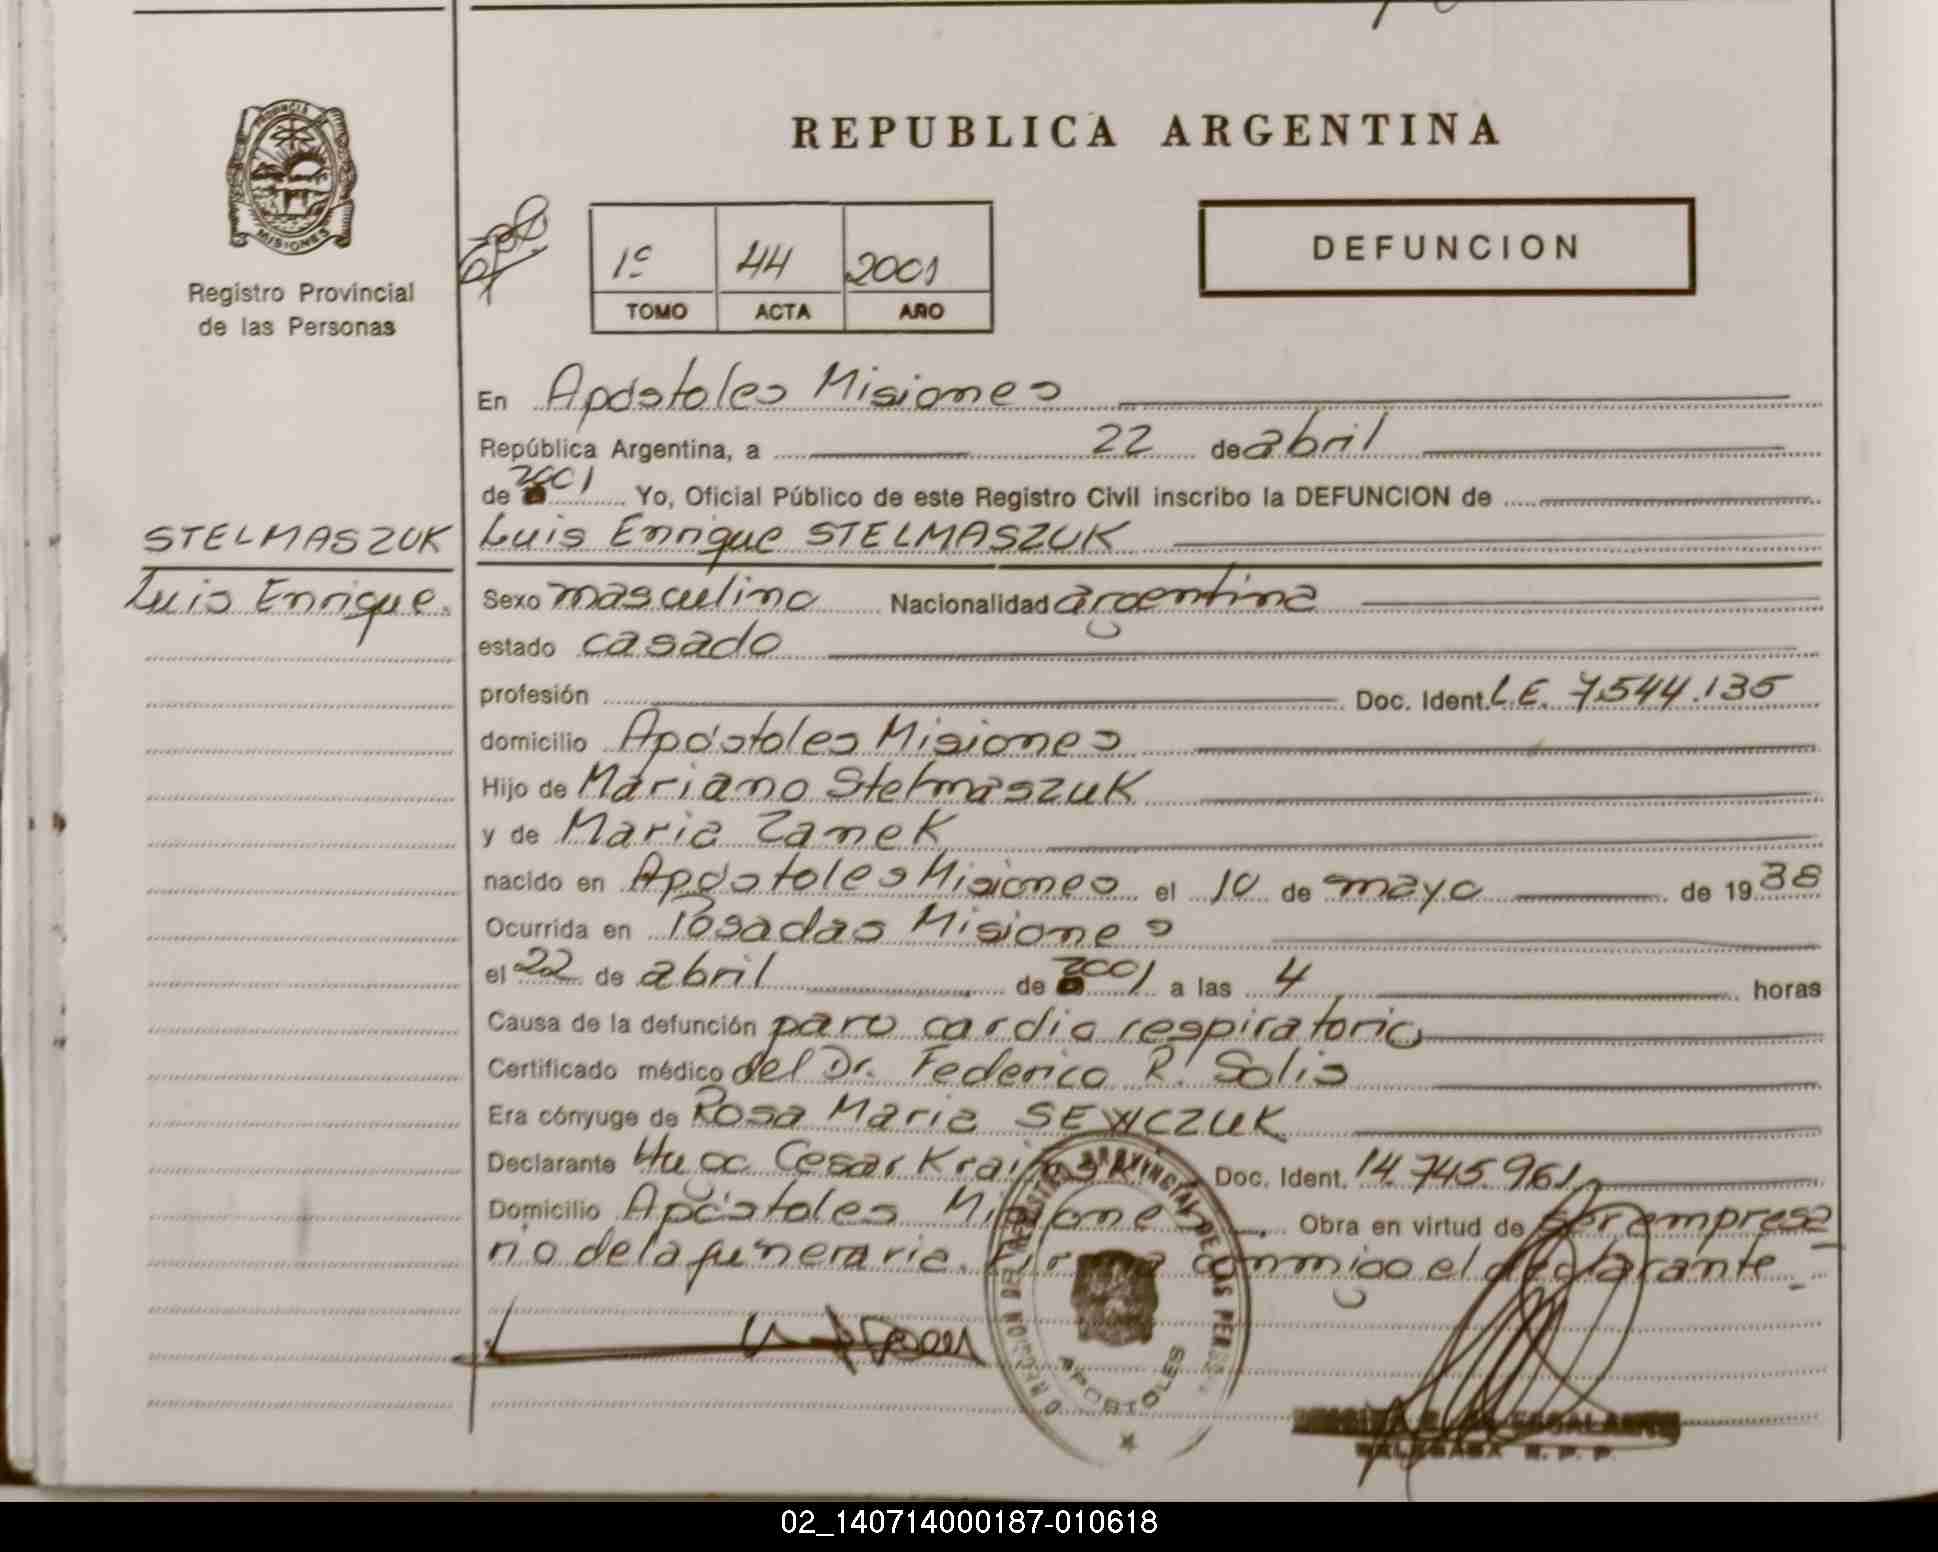 REPUBLICA ARGENTINA
PROVINCIA
MISIONES
Registro Provincial
de las Personas
1º 44 2001
TOMO ACTA AÑO
DEFUNCION
En Apóstoles Misiones
República Argentina, a 22 de abril
de 2001 Yo, Oficial Público de este Registro Civil inscribo la DEFUNCION de
STELMASZUK
Luis Enrique.
Luis Enrique STELMASZUK
Sexo masculino Nacionalidad argentina
estado casado
profesión Doc. Ident. L.E. 7.544.135
domicilio Apóstoles Misiones
Hijo de Mariano Stelmaszuk
y de Maria Zanek
nacido en Apóstoles Misiones el 10 de mayo de 1938
Ocurrida en Posadas Misiones
el 22 de abril de 2001 a las 4 horas
Causa de la defunción paro cardio respiratorio
Certificado médico del Dr. Federico R. Solis
Era cónyuge de Rosa Maria SEWCZUK
Declarante Hugo Cesar Doc. Ident. 14.745.961
Domicilio Apóstoles Misiones Obra en virtud de ser empresa
rio de la funeraria. Firma conmigo el declarante
PROVINCIAL DE LAS
APOSTOLES
R. P. P.
02_140714000187-010618